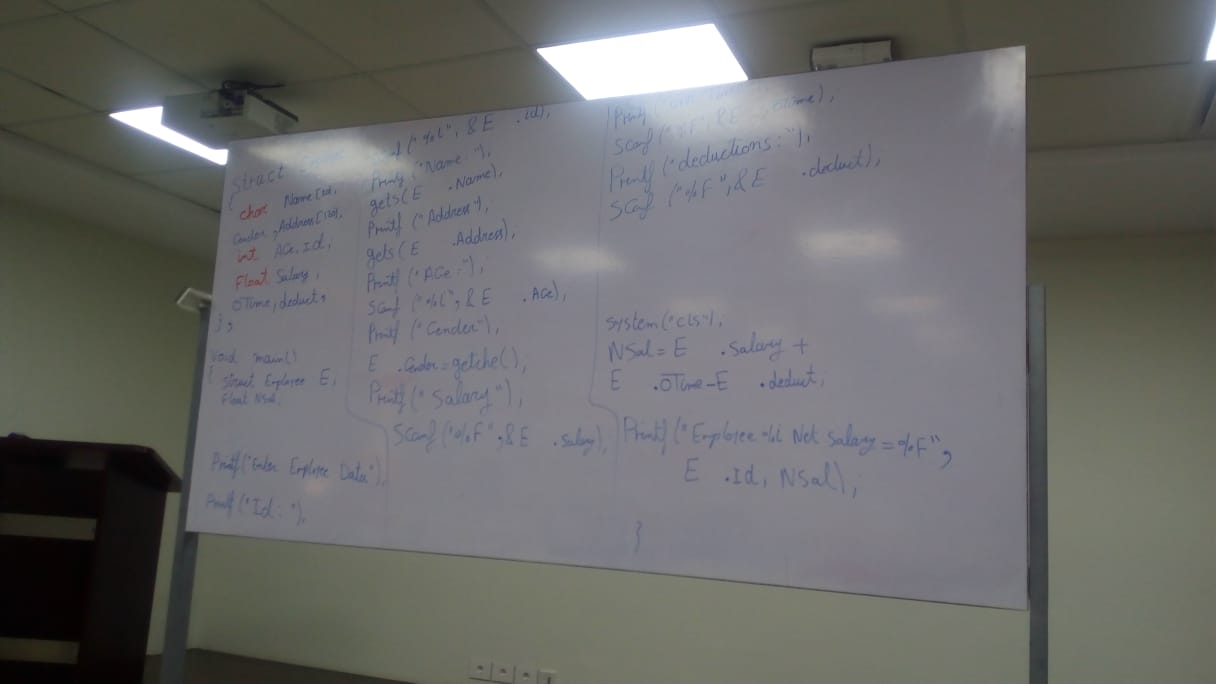 struct
{
char Name[30],
Gender, Address[130],
int AGe, Id,
Float Salary,
OTime, deduct;
};
void main()
{
struct Employee E;
Float NSal;
Printf("Enter Employee Data");
Printf("Id: ");
("%i", &E .id);
Printf("Name: ");
gets(E .Name);
Printf("Address");
gets(E .Address);
Printf("AGe:");
Scanf("%i", &E .AGe);
Printf("Gender");
E .Gender=getche();
Printf("Salary");
Scanf("%F", &E .Salary);
Printf("
Scanf("%F", &E .OTime);
Printf("deductions:");
Scanf("%F", &E .deduct);
system("cls");
NSal=E .Salary +
E .OTime-E .deduct;
Printf("Employee %i Net Salary=%F",
E .Id, NSal);
}